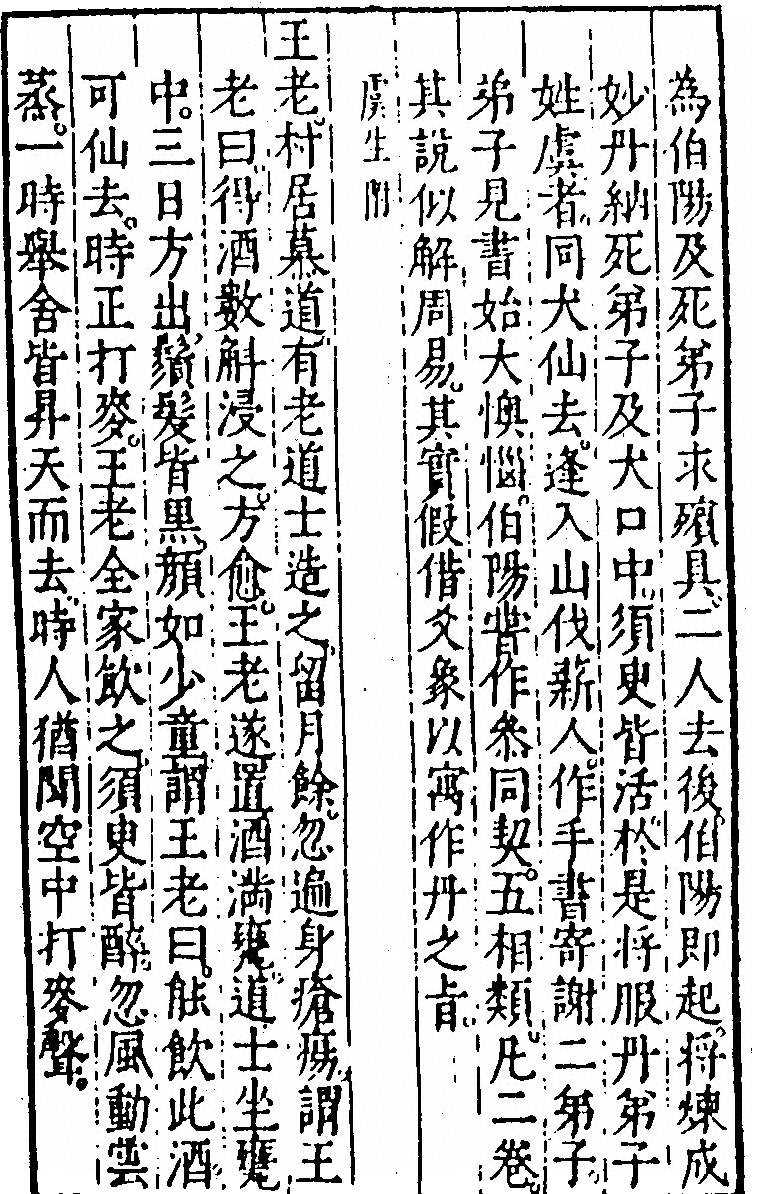 為伯陽及死弟子求殯具二人去後。伯陽即起。將煉成
妙丹納死弟子及犬口中。須臾皆活。於是將服丹弟子
姓虞者。同犬仙去。逢入山伐薪人。作手書寄謝二弟子。
弟子見書始大懊惱。伯陽嘗作叅同契。五相類。凡二卷。
其說似解周易。其實假借爻象以寓作丹之旨。
虞生附
王老。村居慕道。有老道士造之。留月餘。忽遍身瘡瘍。謂王
老曰。得酒數斛浸之。方愈。王老遂置酒滿甕。道士坐甕
中。三日方出。鬚髮皆黑。顏如少童。謂王老曰。能飲此酒
可仙去。時正打麥。王老全家飲之。須臾皆醉。忽風動雲
蒸。一時舉舍皆昇天而去。時人猶聞空中打麥聲。